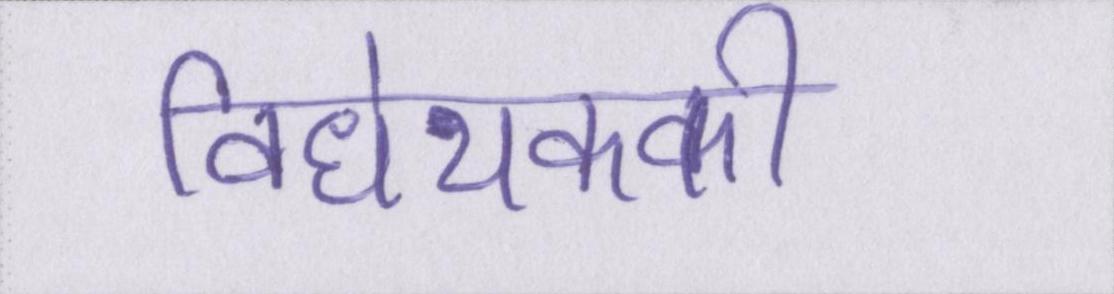 विधेयककी